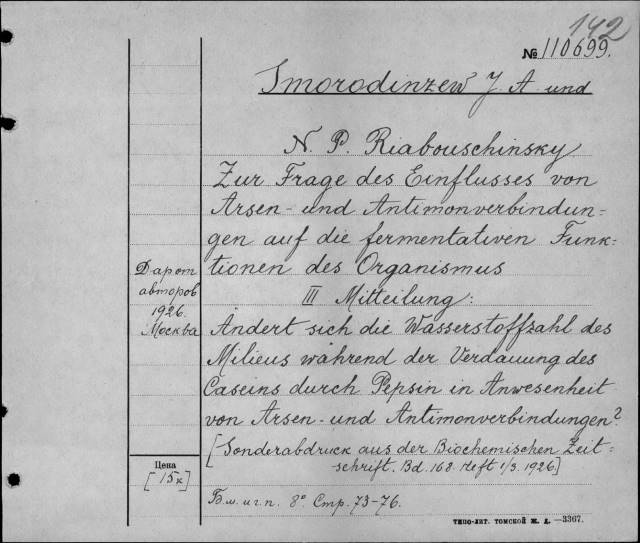 142
№ 110699.
Smorodinzew J. A. und
N. P. Riabouschinsky
Zur Frage des Einflusses von
Arsen- und Antimonverbindun=
gen auf die fermentativen Funk=
tionen des Organismus
III Mitteilung:
Ändert sich die Wasserstoffzahl des
Milieus während der Verdauung des
Caseins durch Pepsin in Anwesenheit
von Arsen- und Antimonverbindungen?
[Sonderabdruck aus der Biochemischen Zeit=
schrift. Bd. 168. Heft 1/3. 1926]
Б. м. и г. п. 8° Стр. 73-76.
Дар от
авторов
1926.
Москва
Цена
[15к]
ТИПО-ЛИТ. ТОМСКОЙ Ж. Д. —3367.